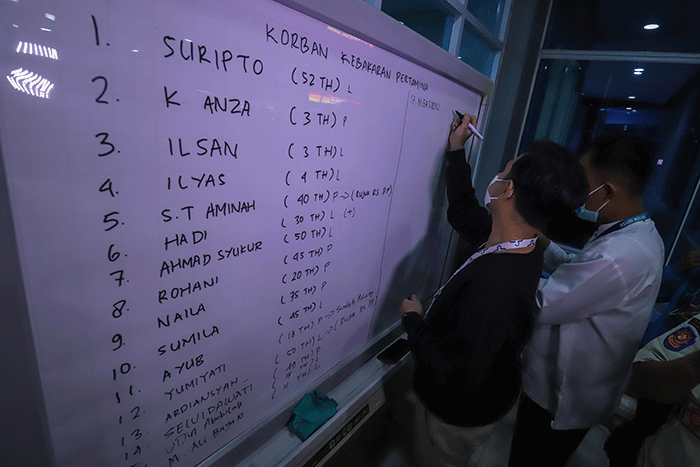 KORBAN KEBAKARAN PERTAMINA
1. SURIPTO (52 TH) L
2. K ANZA (3 TH) P
3. ILSAN (3 TH) L
4. ILYAS (4 TH) L
5. S.T AMINAH (40 TH) P → (RUJUK RS.
6. HADI (30 TH) L (+)
7. AHMAD SYUKUR (50 TH) L
8. ROHANI (45 TH) P
9. NAILA (20 TH) P
10. SUMILA (75 TH) P
11. AYUB (45 TH) L
12. YUMIYATI (18 TH) P →
13. ARDIANSYAH (50 TH) L → (RUJUK RS
14. SELVIDAWATI TH) P
15. TH) L
M. Ali TH) L
17.